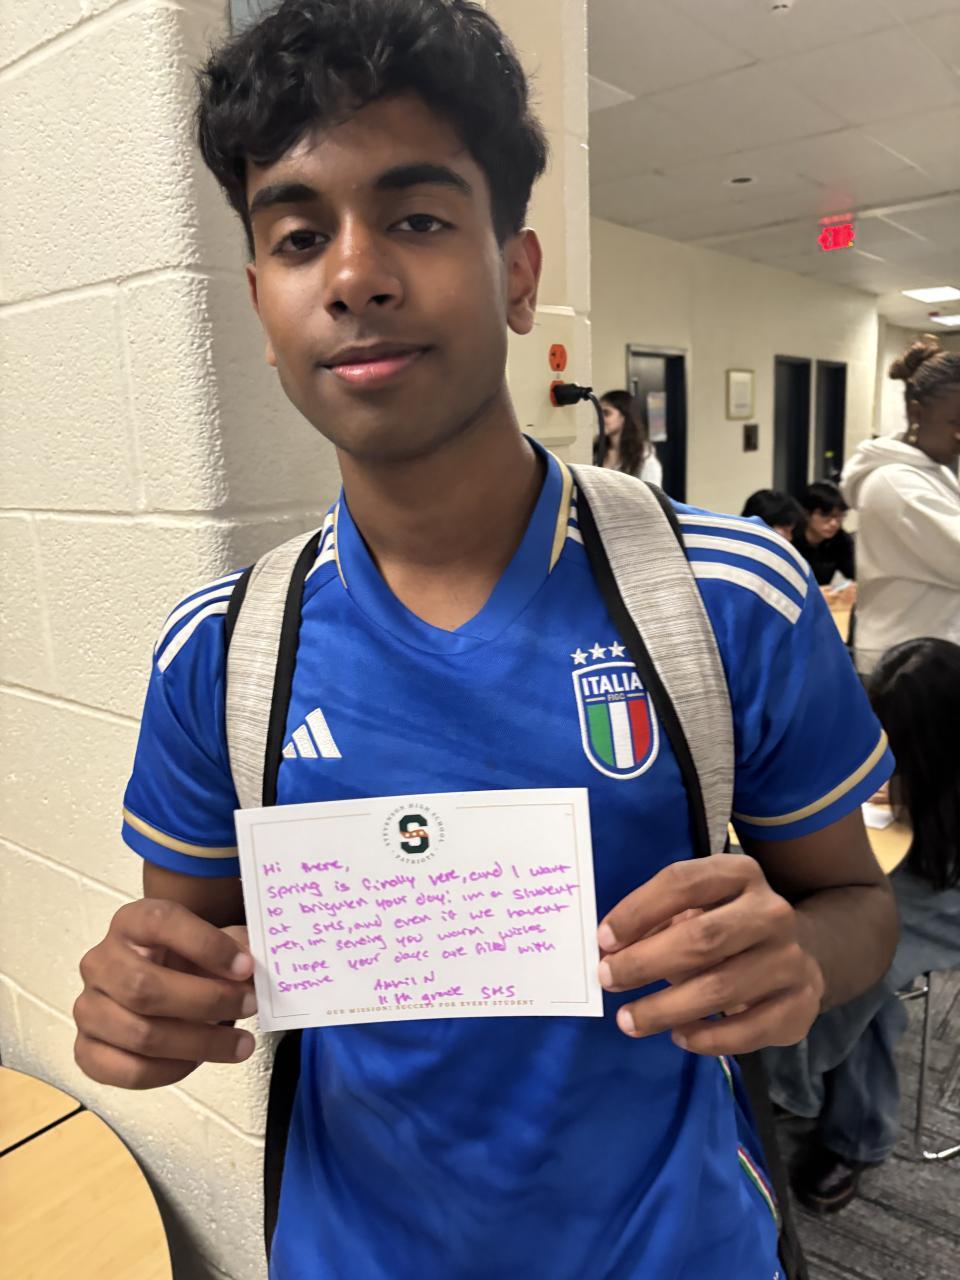 EXIT
ITALIA
FIGC
STEVENSON HIGH SCHOOL
S
PATRIOTS
Hi there,
Spring is finally here, and I want
to brighten your day! im a student
at SHS, and even if we havent
met, im sending you warm wishes
I hope your days are filled with
sunshine
11th grade SHS
OUR MISSION: SUCCESS FOR EVERY STUDENT